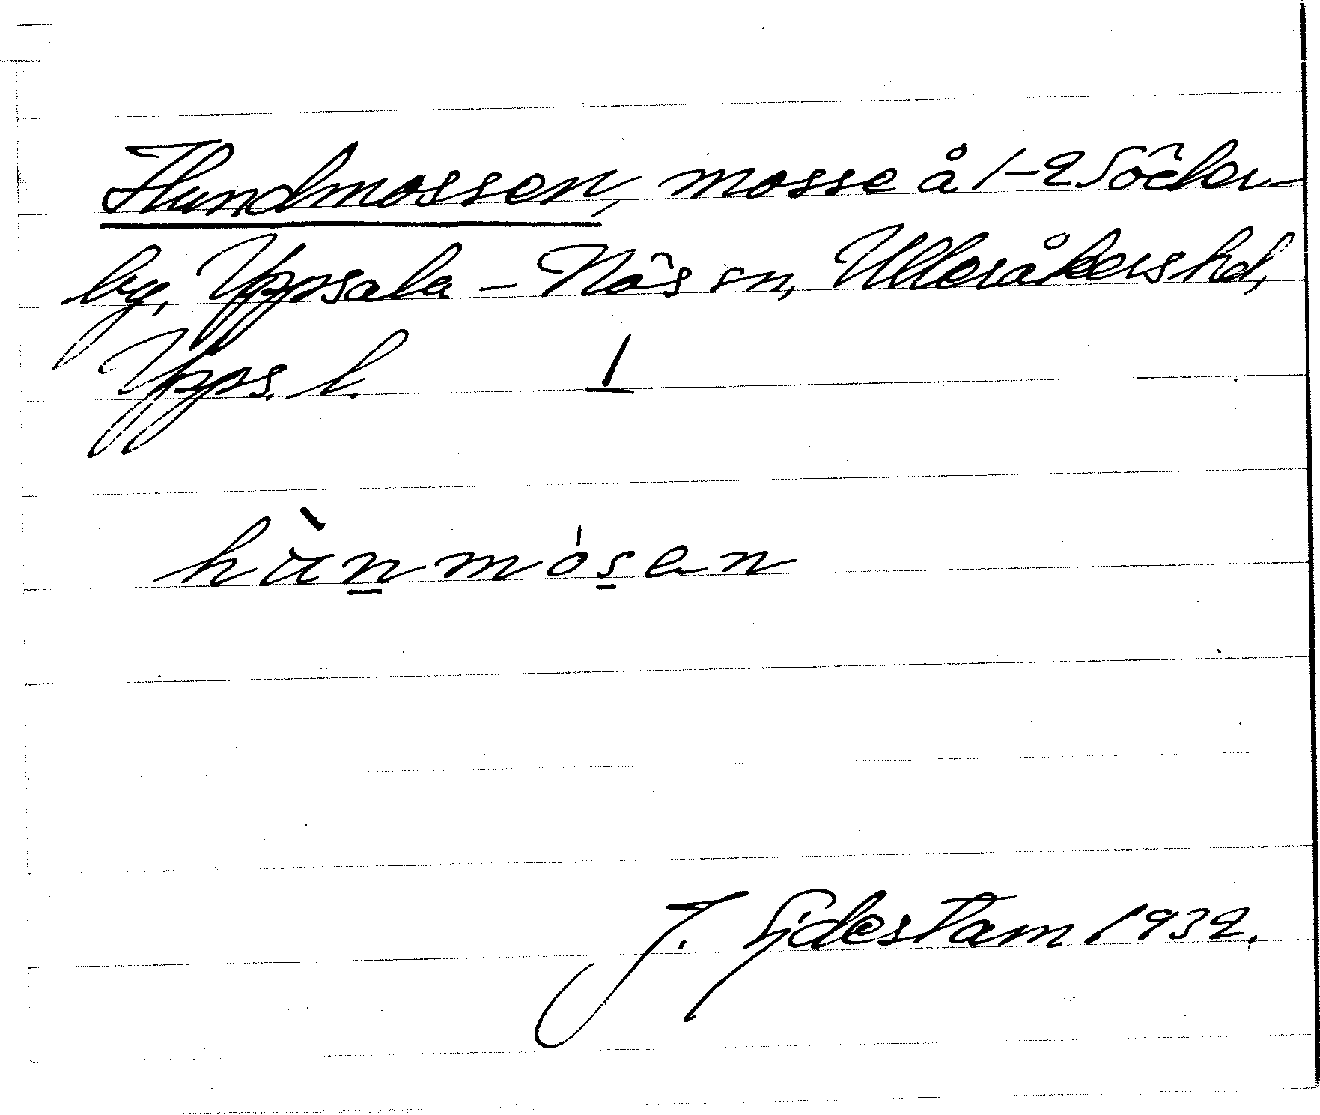 Hundmossen, mosse å 1-2 Söder-
by, Uppsala - Näs sn, Ulleråkers hd,
Upps. l. 1
hùn̲mós̲en
J. Sidestam 1932.